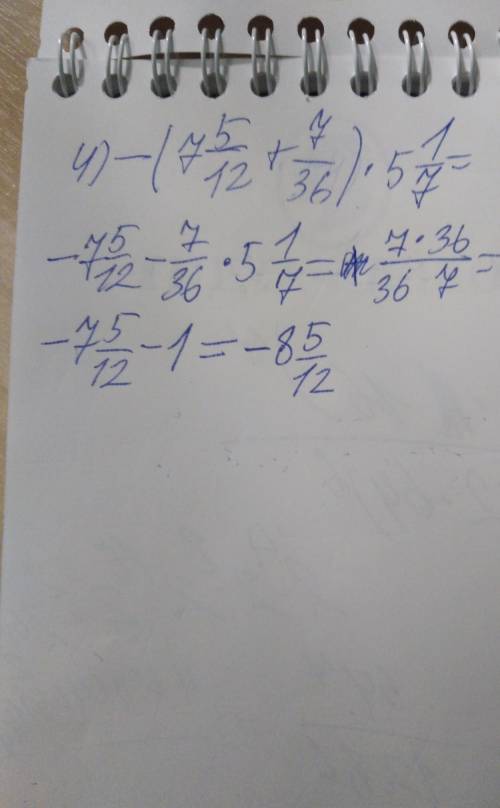 4) -(7 5/12 + 7/36) · 5 1/7 =
-7 5/12 - 7/36 · 5 1/7 = 7·36/36 7 =
-7 5/12 - 1 = -8 5/12